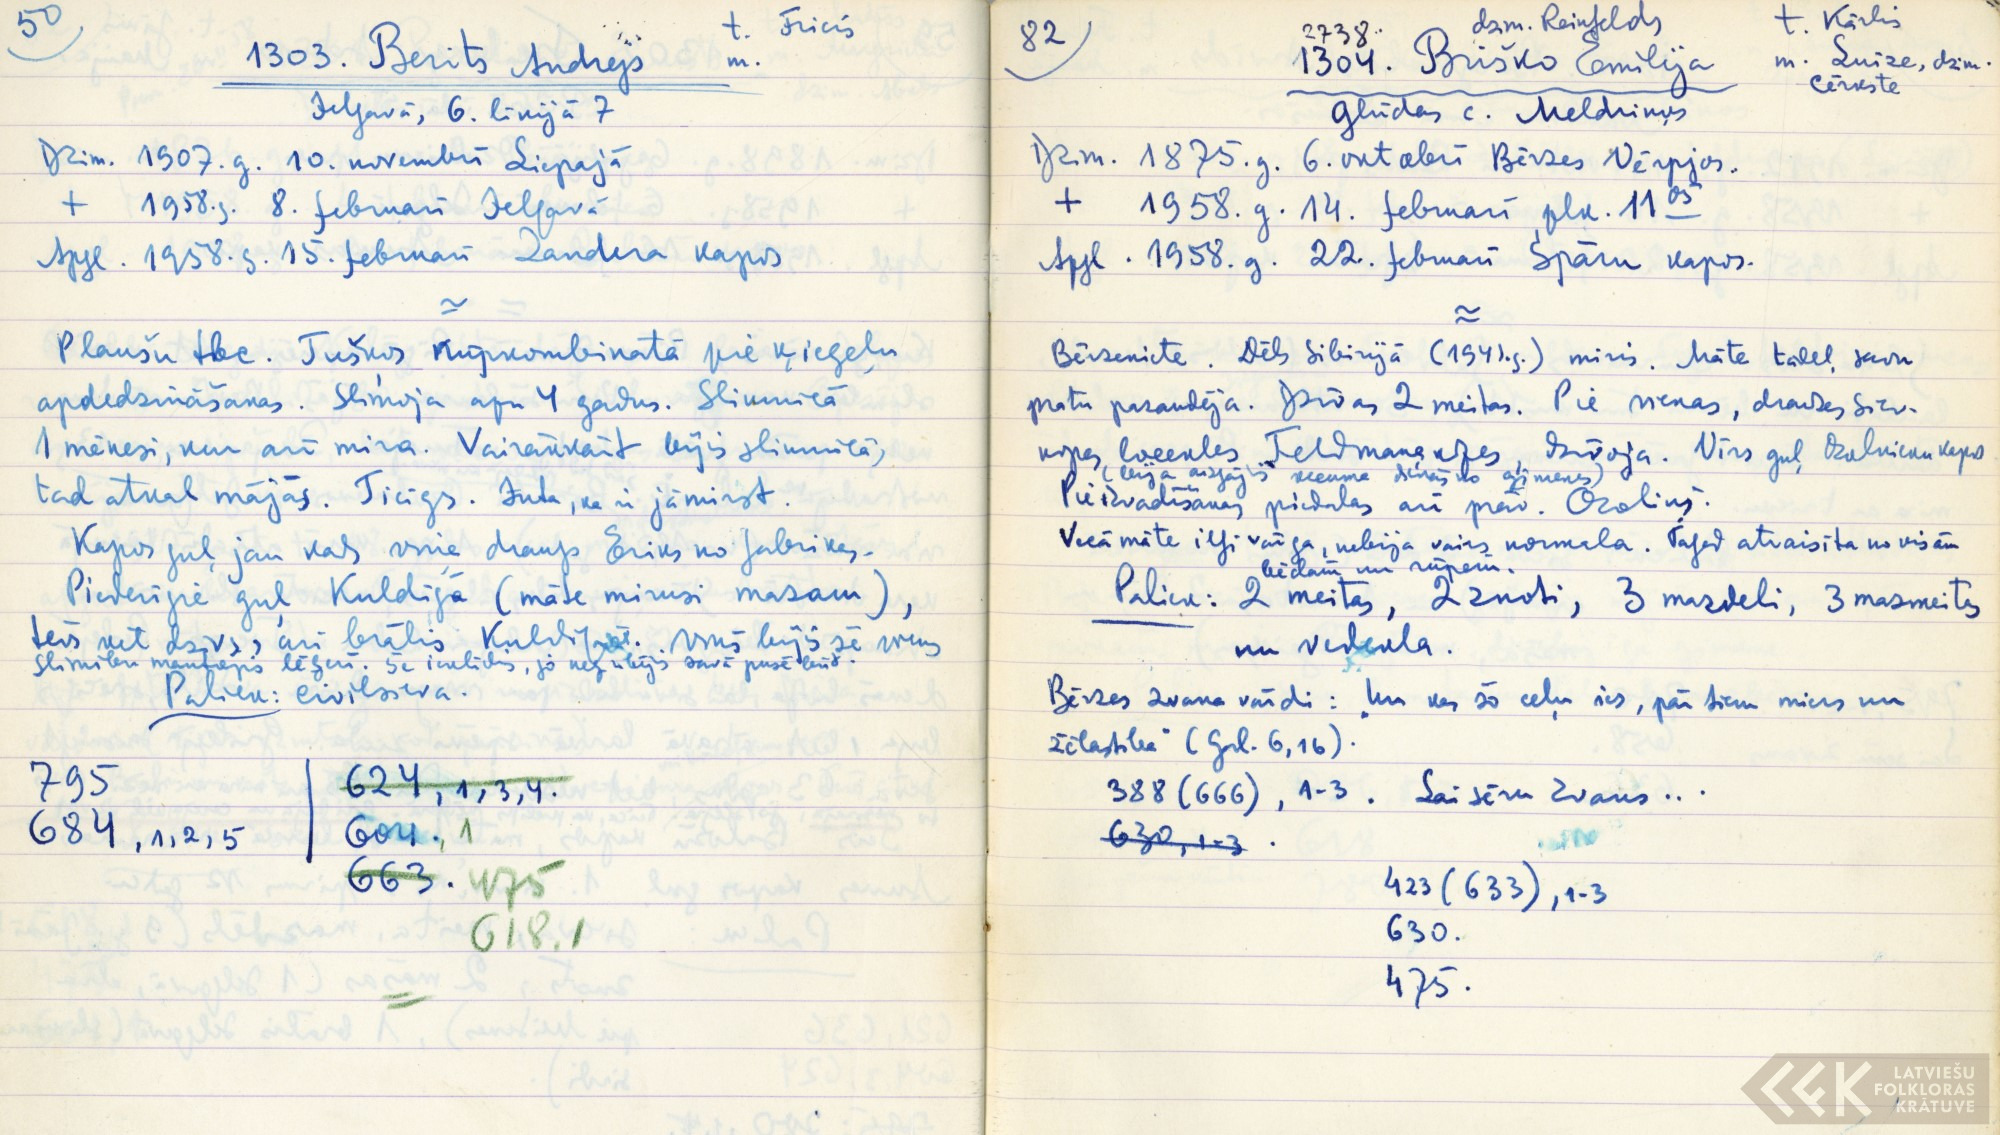 50
t. Fricis
1303. Berits Andrejs m.
Jelgavā, 6. līnijā 7
Dzim. 1907. g. 10. novembrī Liepājā
+ 1958. g. 8. februārī Jelgavā
Apgl. 1958. g. 15. februārī Zandera kapos
≈
Plaušu tbc. Tušķos rūpkombinātā pie ķieģeļu
apdedzināšanas. Slimoja apm 4 gadus. Slimnīcā
1 mēnesi, kur arī mira. Vairākkārt bijis slimnīcā,
tad atkal mājās. Ticīgs. Juta, ka ir jāmirst.
Kapos guļ jau kāds viņa draugs Ēriks no fabrikas.
Piederīgie guļ Kuldīgā (māte mirusi mazam),
tēvs vēl dzīvs, arī brālis Kuldīgā. Viņš bijis šē viens
Slimību mantojis lēģerī. Še ieklīdis, jo negribējis savā pusē būt.
Paliek: civilsieva.
795
684, 1, 2, 5
624, 1, 3, 4.
604, 1
663. 475
618.1
82
2738. dzim. Reinfelds
t. Kārlis
1304. Briško Emīlija
m. Luīze, dzim.
Cērkste
Glūdas c. Meldriņos
Dzim. 1875. g. 6. oktobrī Bērzes Vērpjos.
+ 1958. g. 14. februārī plk. 11 05
Apgl. 1958. g. 22. februārī Spāru kapos.
≈
Bērzeniete. Dēls Sibīrijā (1941. g.) miris. Māte tādēļ savu
prātu pazaudēja. Dzīvas 2 meitas. Pie vienas, draudzes siev.
kopas locekles Feldmaņa kdzes dzīvoja. Vīrs guļ Ozolnieku kapos
(bija aizgājis dienās no ģimenes)
Pie izvadīšanas piedalās arī prāv. Ozoliņš.
Vecāmāte ilgi vārga, nebija vairs normāla. Tagad atraisīta no visām
bēdām un rūpēm.
Paliek: 2 meitas, 2 znoti, 3 mazdēli, 3 mazmeitas
un vedekla.
Bērzes zvana vārdi: "Un kas šo ceļu ies, pār tiem miers un
žēlastība" (Gal. 6,16).
388 (666), 1-3. Lai sēru zvans...
630, 1-3.
423 (633), 1-3
630.
475.
LATVIEŠU
FOLKLORAS
KRĀTUVE